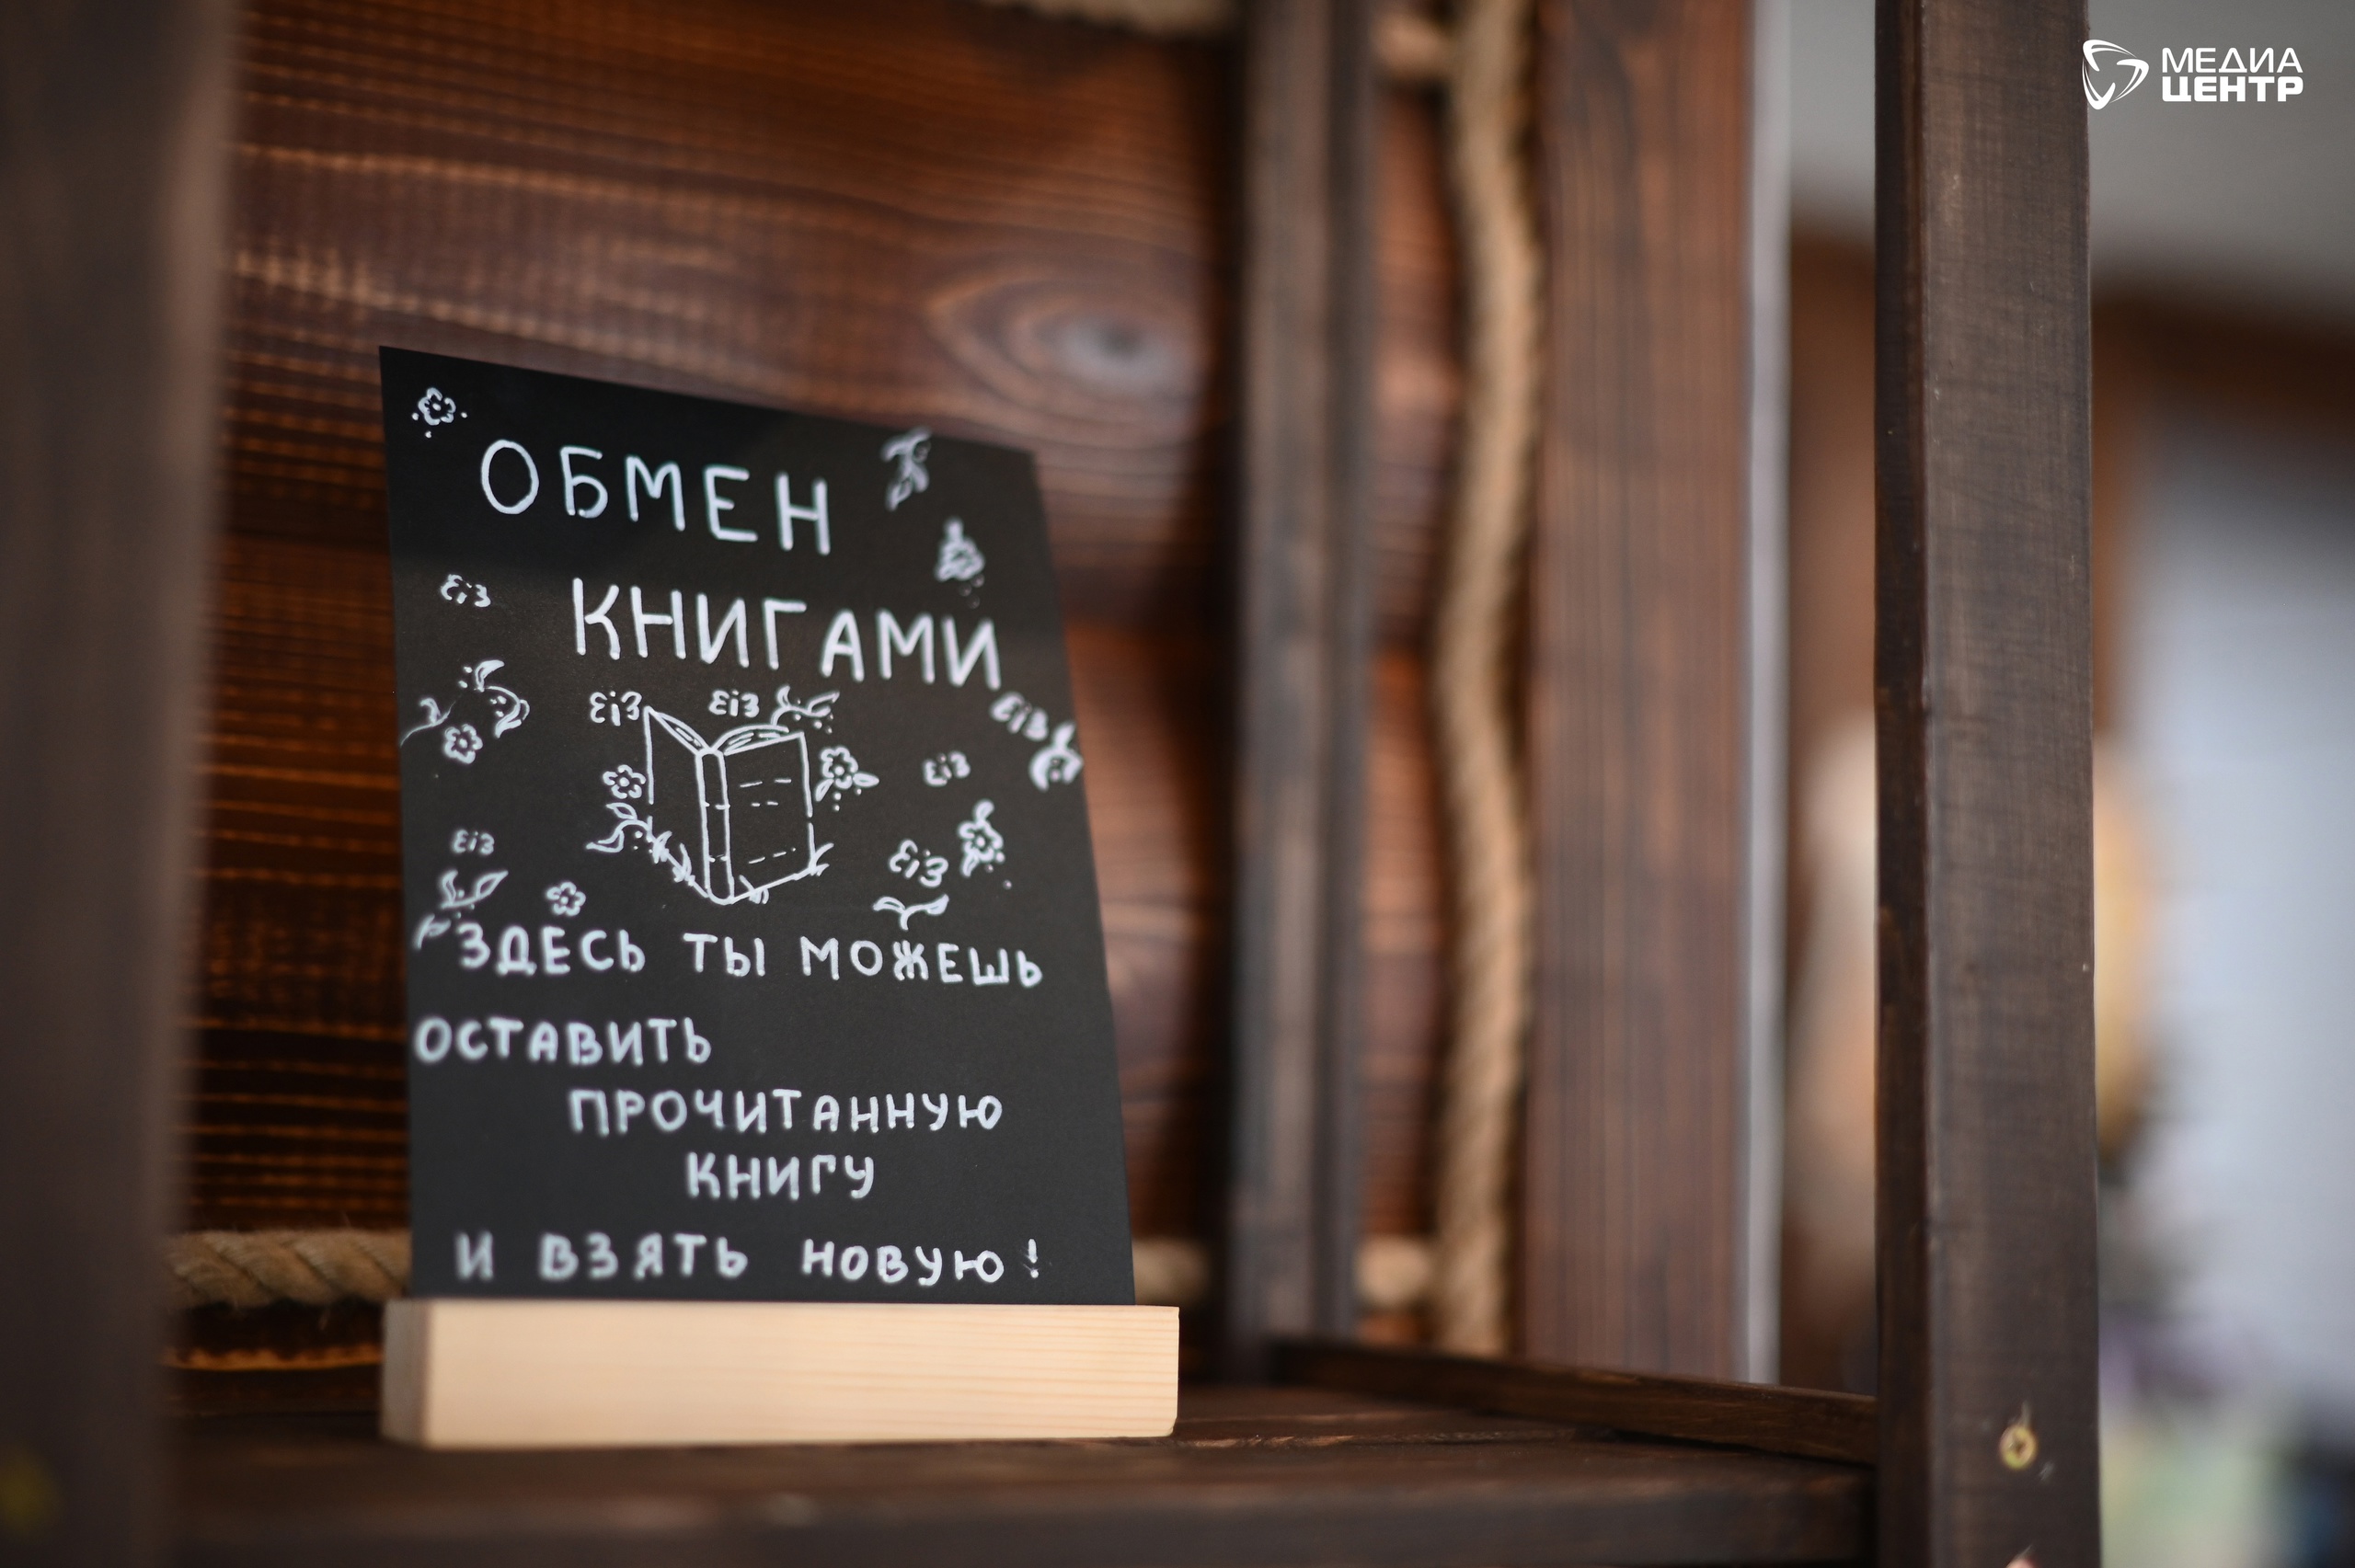 МЕДИА
ЦЕНТР
ОБМЕН
КНИГАМИ
ЗДЕСЬ ТЫ МОЖЕШЬ
ОСТАВИТЬ
ПРОЧИТАННУЮ
КНИГУ
И ВЗЯТЬ НОВУЮ!